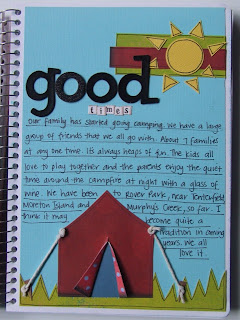 good
times
Our family has started going camping. We have a large
group of friends that we all go with. About 7 families
at any one time. Its always heaps of fun. The kids all
love to play together and the parents enjoy the quiet
time around the campfire at night with a glass of
wine. We have been to Rover Park, near Tenterfield
Moreton Island and Murphy's Creek, so far. I
think it may become quite a
tradition in coming
years. We all
love it..